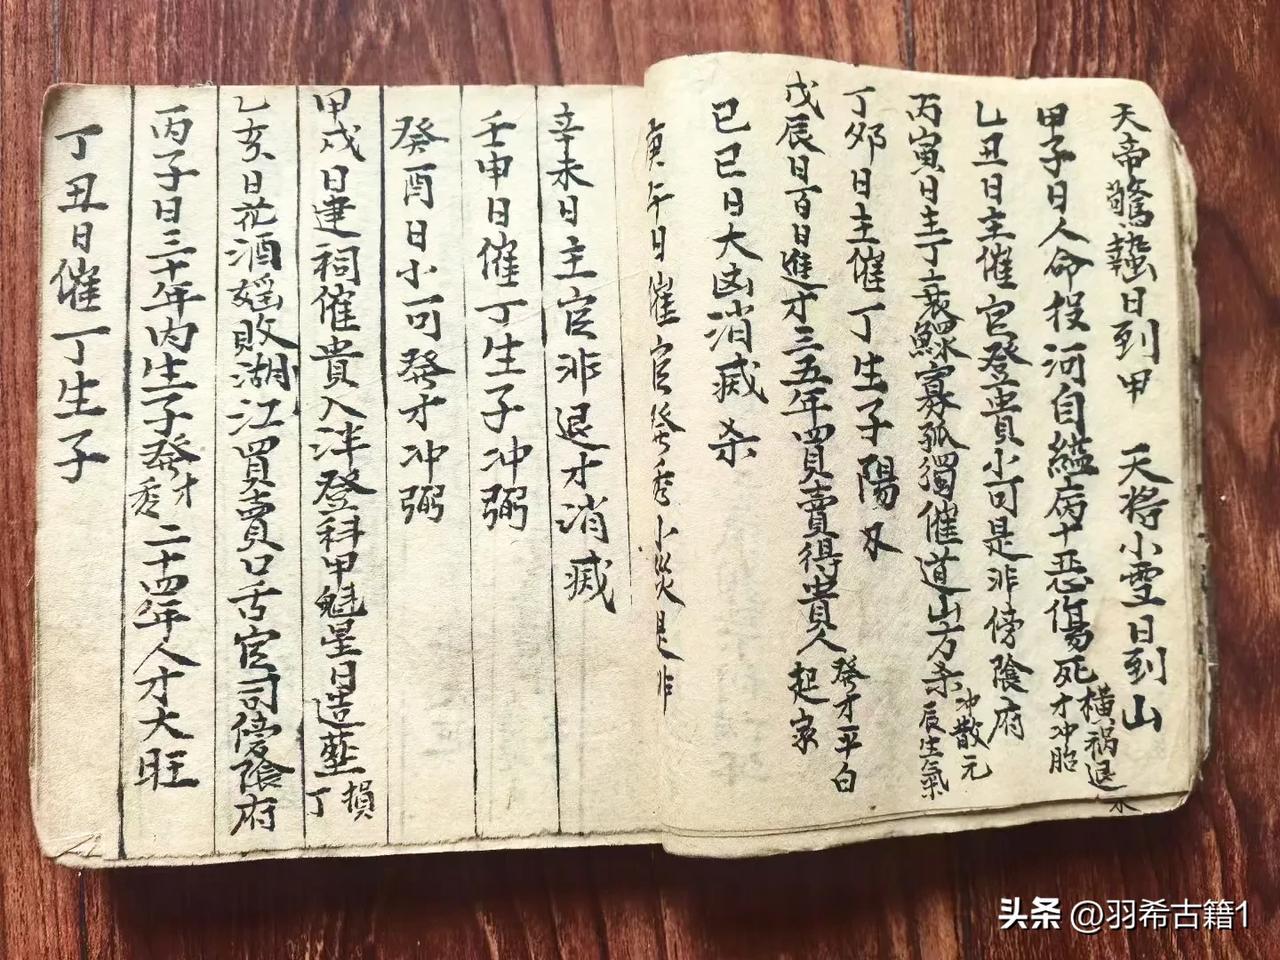 天帝驚蟄日到甲　天將小雪日到山
甲子日人命投河自縊病十惡傷死橫禍退才冲胎
乙丑日主催官登貴小可是非傍陰府
丙寅日主丁衰鰥寡孤獨催道山方杀冲散元辰生氣
丁夘日主催丁生子陽
戊辰日百日進才三五年買賣得貴人發才平白起家
已巳日大凶消烕杀
庚午日催官發秀小災是非
辛未日主官非退才消烕
壬申日催丁生子冲弼
癸酉日小可發才冲弼
甲戌日建祠催貴入泮登科甲魁星日造塟損丁
乙亥日花酒嫍敗湖江買賣口舌官司傍陰府
丙子日三十年内生子發才秀二十四年人才大旺
丁丑日催丁生子
头条 @羽希古籍1